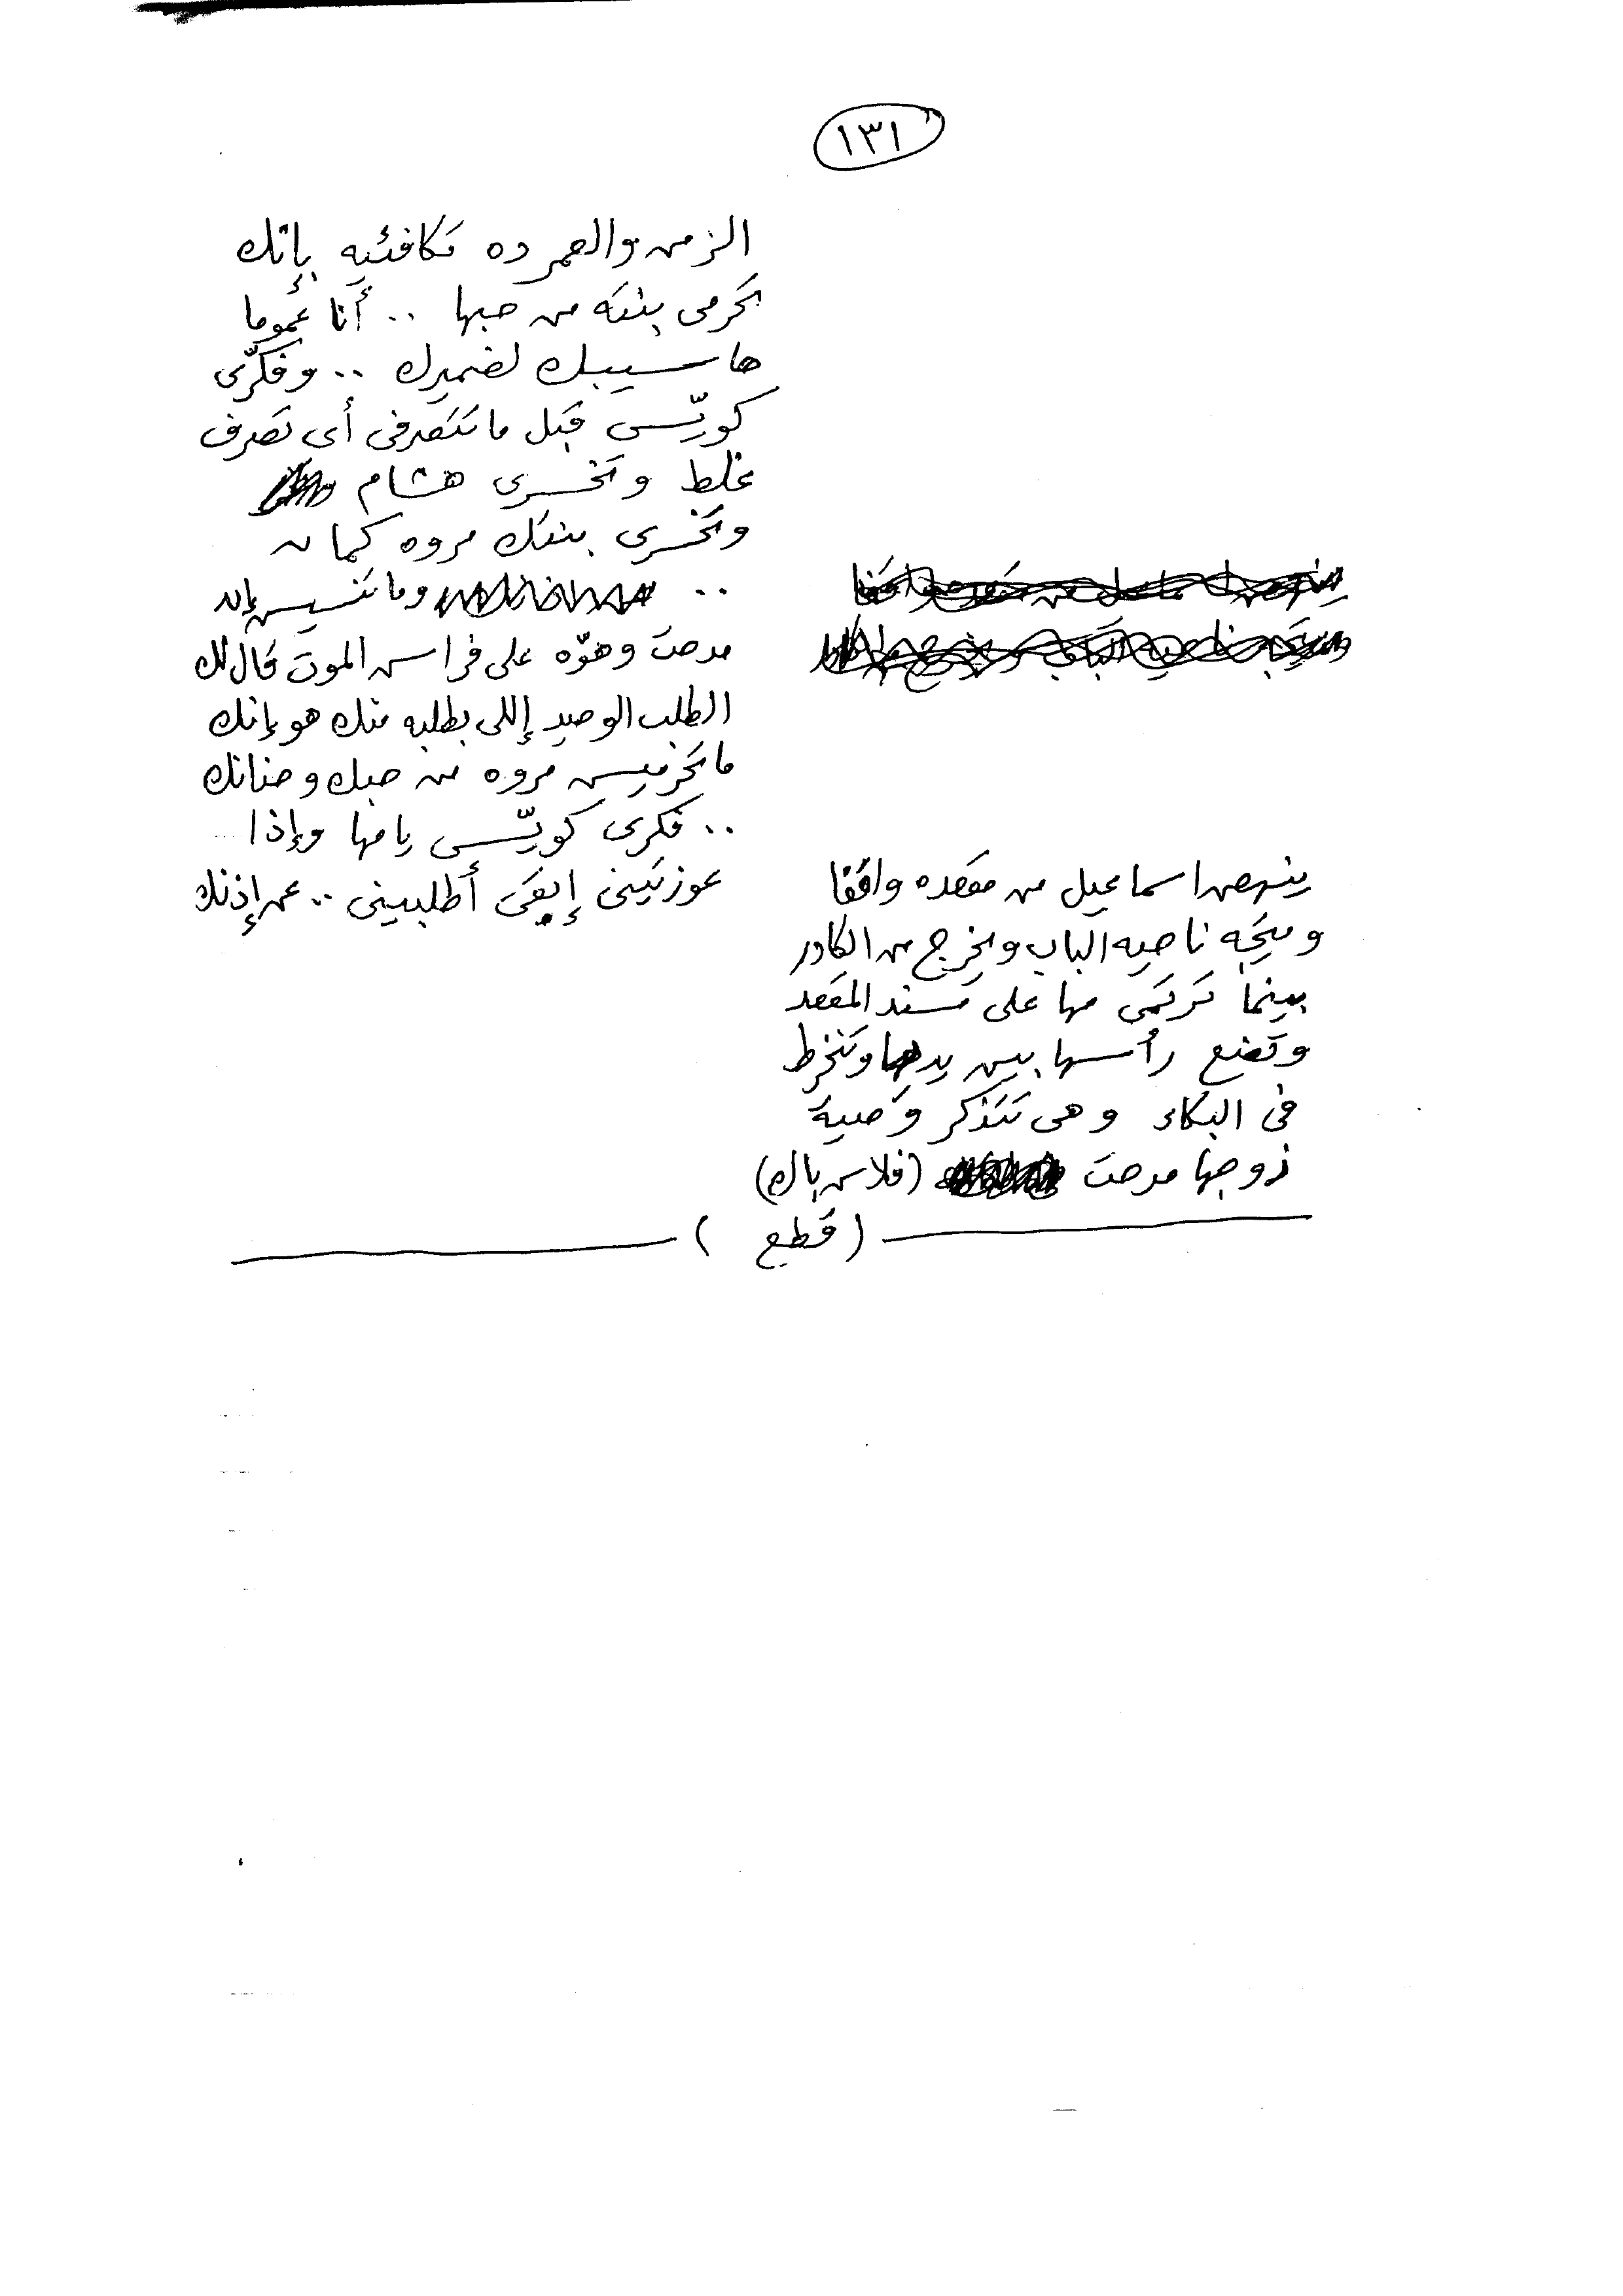 ١٣١
الزمن والعمر ده تكافئيه بإنك
تحرمى بنته من حبها .. أنا عموما
هاسيبك لضميرك .. وفكرّى
كويّس قبل ما تتصرفى أى تصرف
غلط وتخسرى هشام
وتخسرى بنتك مروه كمان
.. وما تنسيس إن
مدحت وهوّه على فراس الموت قال لك
الطلب الوحيد إللى بطلبه منك هو إنك
ما تحرميس مروه من حبك وحنانك
.. فكرى كويّس يا مها وإذا
عوزتينى إبقى أطلبينى .. عن إذنك
ينهض اسماعيل من مقعده واقفا
ويتجه ناحيه الباب ويخرج من الكادر
بينما ترتمى مها على مسند المقعد
وتضع رأسها بين يديها وتنخرط
فى البكاء وهى تتذكر وصية
زوجها مدحت (فلاس باك)
( قطع )